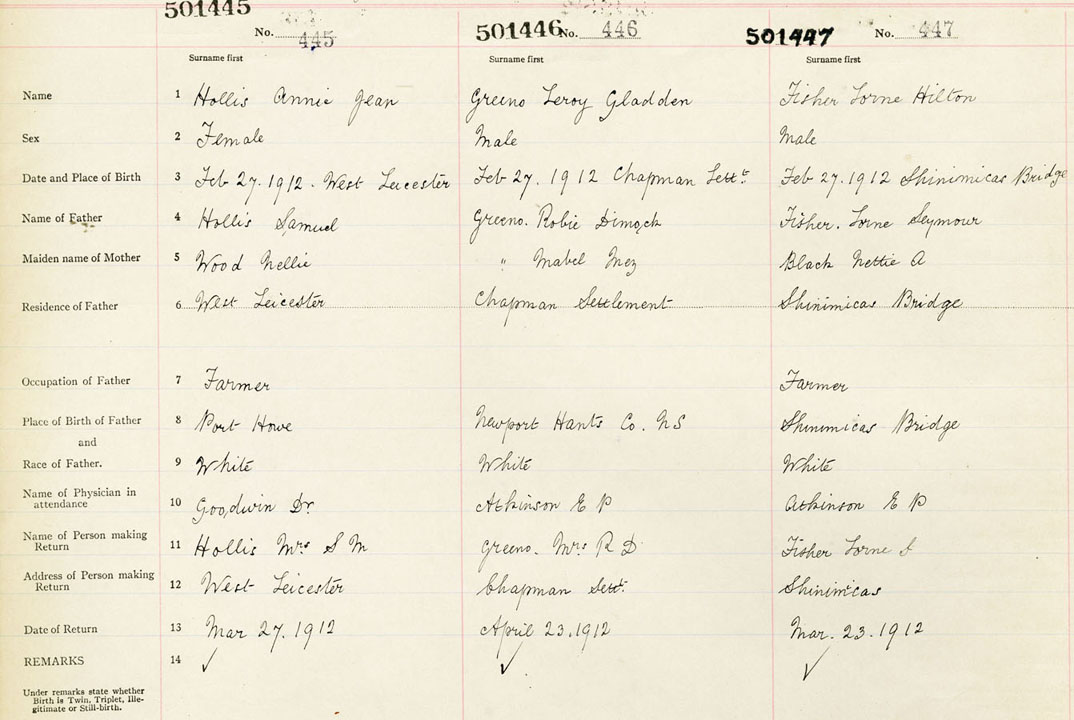 501445 501446 501447
No. 445 No. 446 No. 447
Surname first Surname first Surname first
Name 1 Hollis Annie Jean Greeno Leroy Gladden Fisher Lorne Hilton
Sex 2 Female Male Male
Date and Place of Birth 3 Feb 27. 1912. West Leicester Feb 27. 1912 Chapman Settt Feb 27. 1912 Shinimicas Bridge
Name of Father 4 Hollis Samuel Greeno. Robie Dimock Fisher. Lorne Seymour
Maiden name of Mother 5 Wood Nellie " Mabel Inez Black Nettie A
Residence of Father 6 West Leicester Chapman Settlement Shinimicas Bridge
Occupation of Father 7 Farmer Farmer
Place of Birth of Father 8 Port Howe Newport Hants Co. NS Shinimicas Bridge
and
Race of Father. 9 White White White
Name of Physician in attendance 10 Goodwin Dr Atkinson E P Atkinson E P
Name of Person making Return 11 Hollis Mrs S M Greeno. Mrs R D Fisher Lorne S
Address of Person making Return 12 West Leicester Chapman Sett. Shinimicas
Date of Return 13 Mar 27. 1912 April 23. 1912 Mar. 23. 1912
REMARKS 14 ✓ ✓ ✓
Under remarks state whether
Birth is Twin, Triplet, Ille-
gitimate or Still-birth.